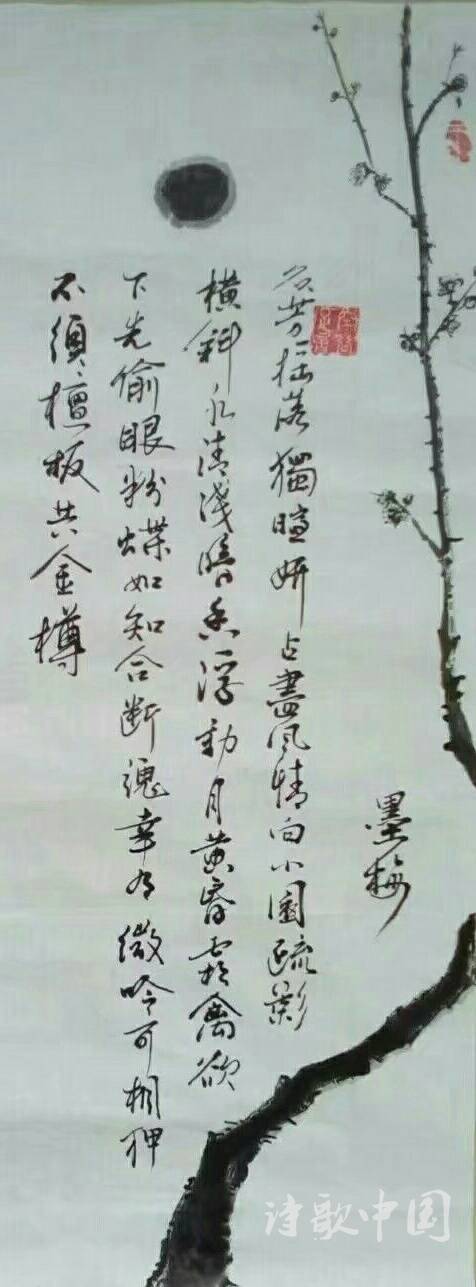 墨梅
众芳摇落獨暄妍占盡风情向小園疏影
横斜水清淺暗香浮動月黄昏霜禽欲
下先偷眼粉蝶如知合断魂幸有微吟可相狎
不須檀板共金樽
诗歌中国